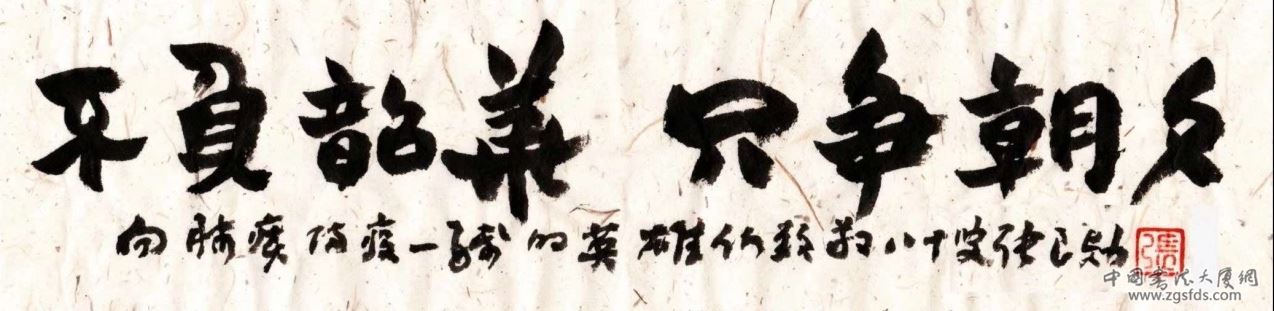 不负韶华 只争朝夕
向肺炎防疫一线的英雄们致敬 八十叟张良勋
張
中国书法大厦网
www.zgsfds.com